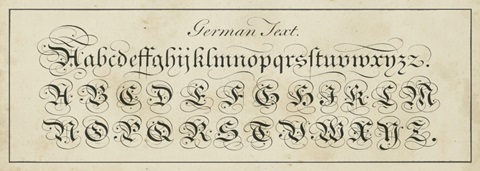 German Text.
Aabcdeffghijklmnopqrsſtuvwxyzz.
A B C D E F G H I K L M
N O P Q R S T V W X Y Z.